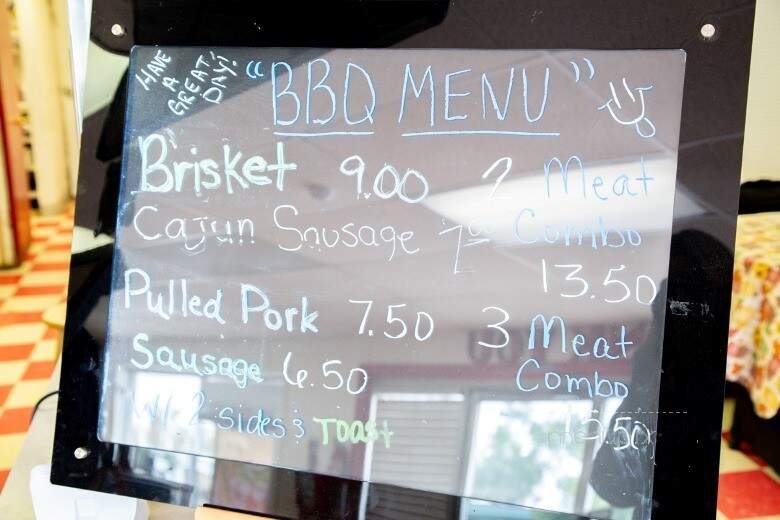 HAVE
A
GREAT
DAY!
"BBQ MENU"
Brisket 9.00
Cajun Sausage 7.00
Pulled Pork 7.50
Sausage 6.50
W/ 2 sides & Toast
2 Meat
Combo
13.50
3 Meat
Combo
15.50